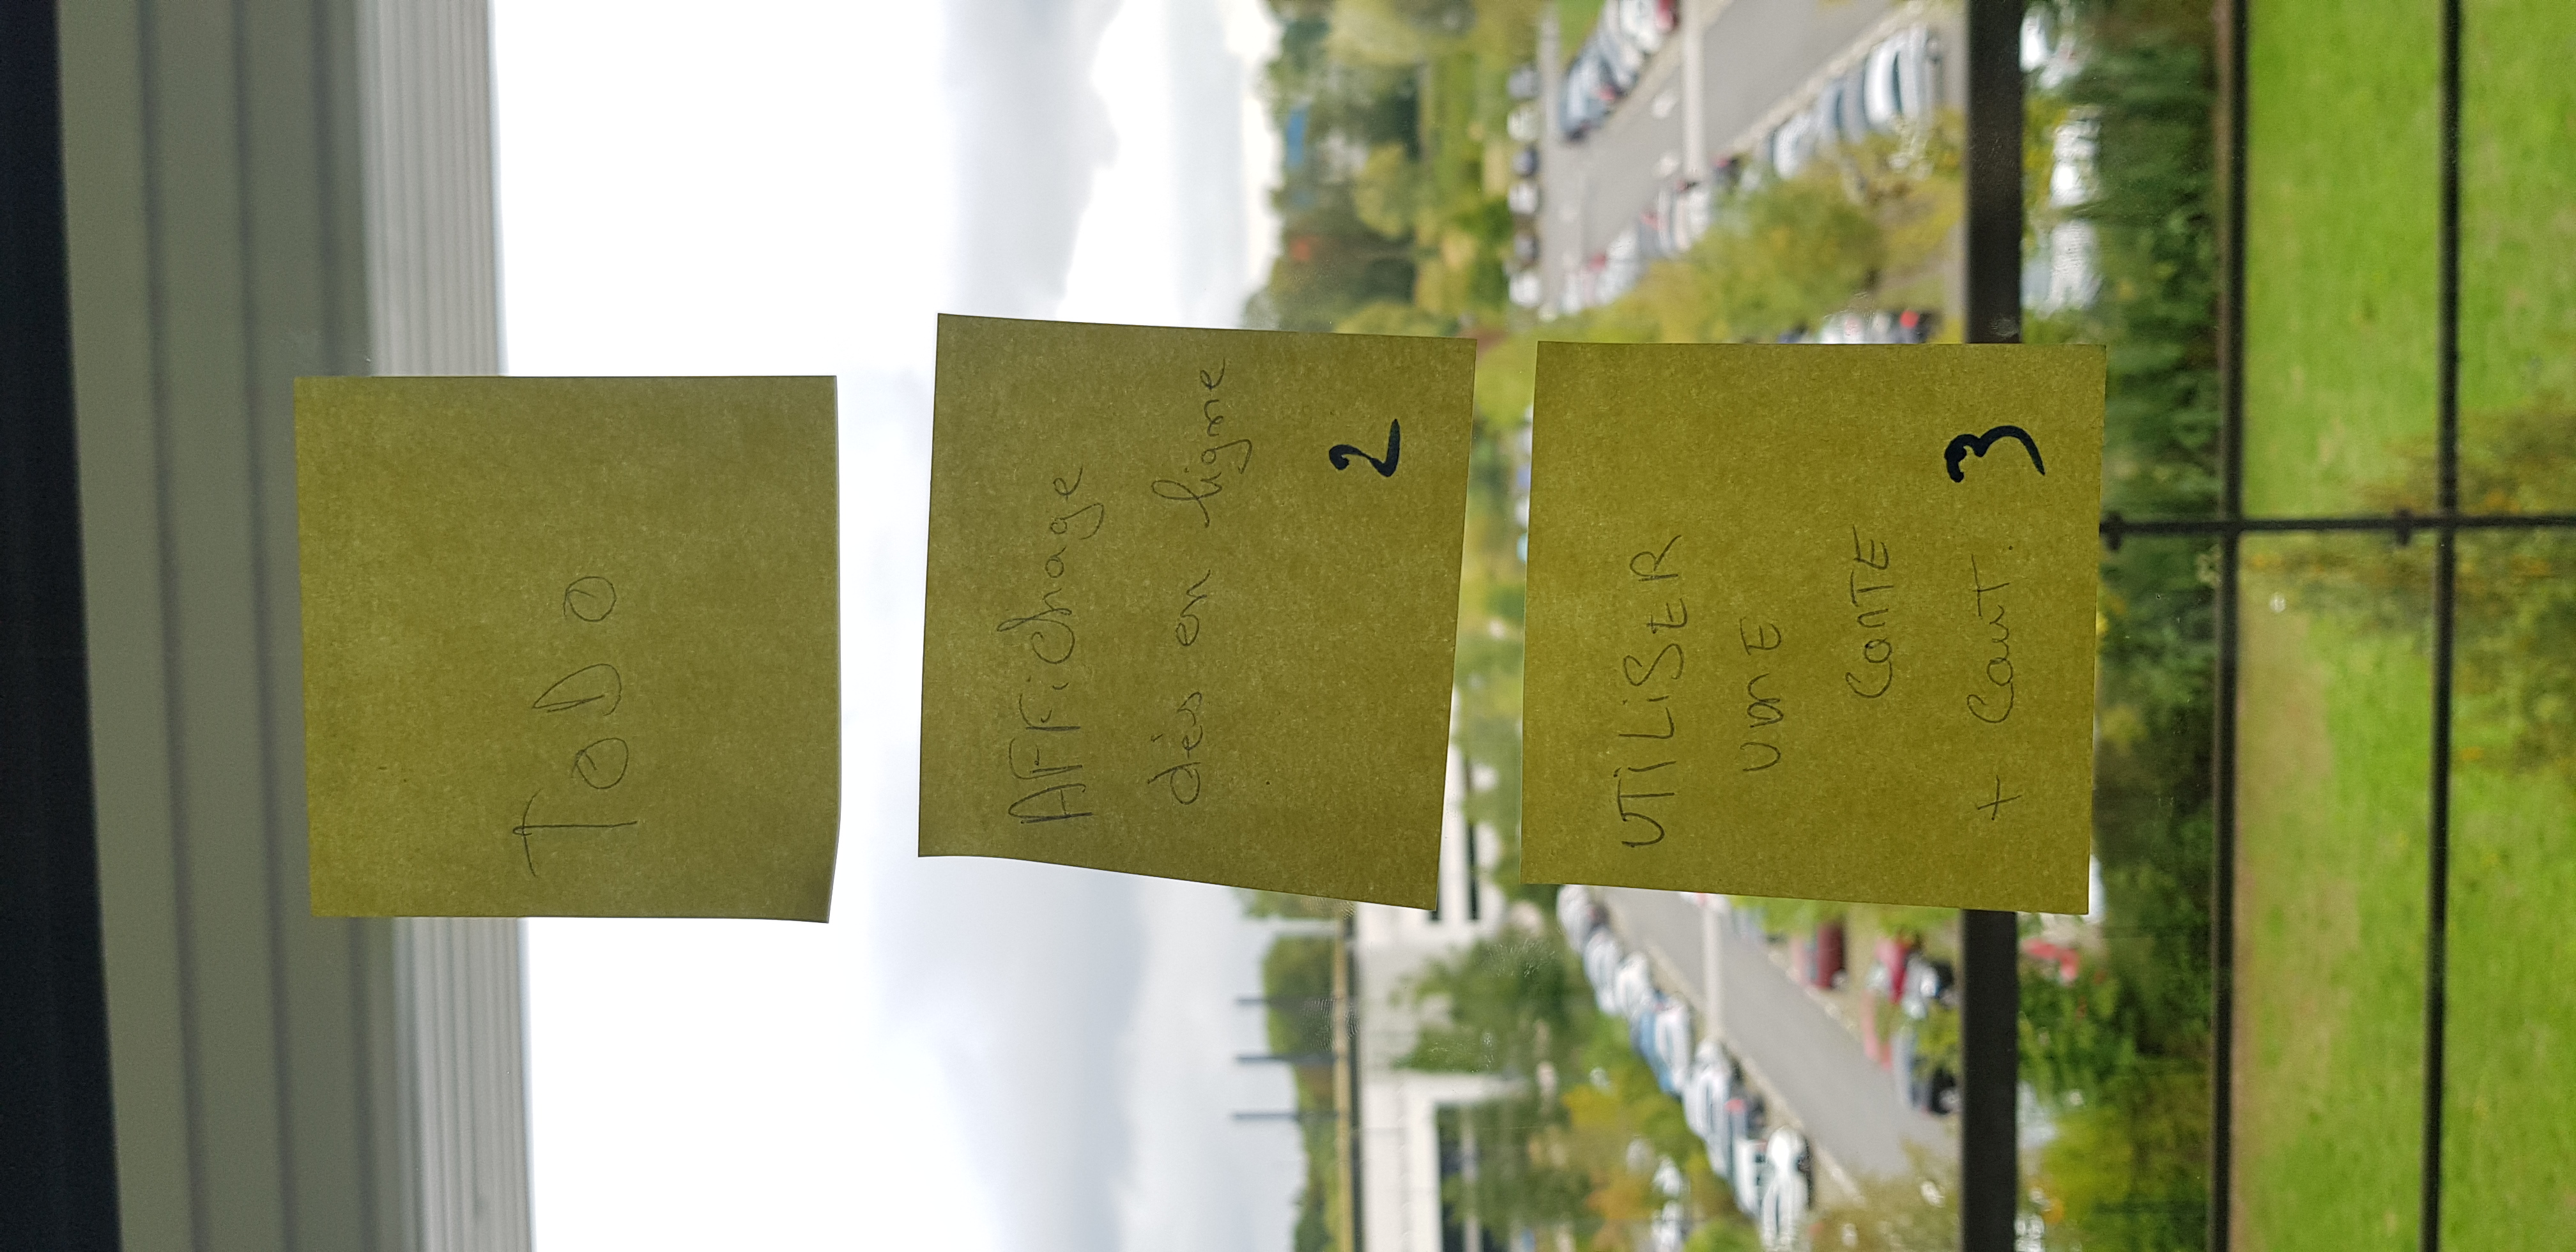 ToDo
AFFichage
dés en ligne
2
UTiLiSER
UNE
CARTE
+ Caut. 3